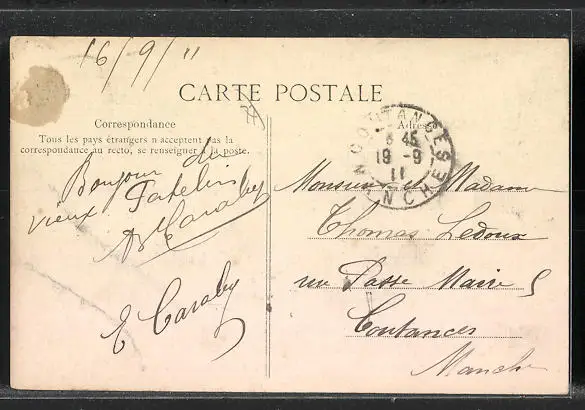 16/9/11
CARTE POSTALE
Correspondance
Tous les pays étrangers n'acceptent pas la
correspondance au recto, se renseigner à la poste.
Adresse
COUTANCES
45
19 -9
11
MANCHE
Bonjour de
vieux Patelin
Caraby
E Caraby
Monsieur et Madame
Thomas Ledoux
rue Passe Maire 5
Coutances
Manche